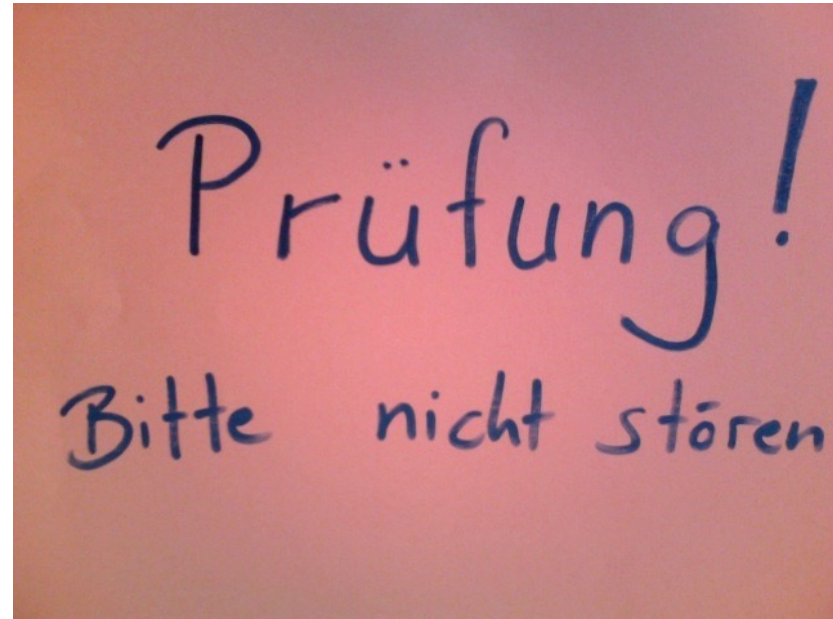 Prüfung!
Bitte nicht stören